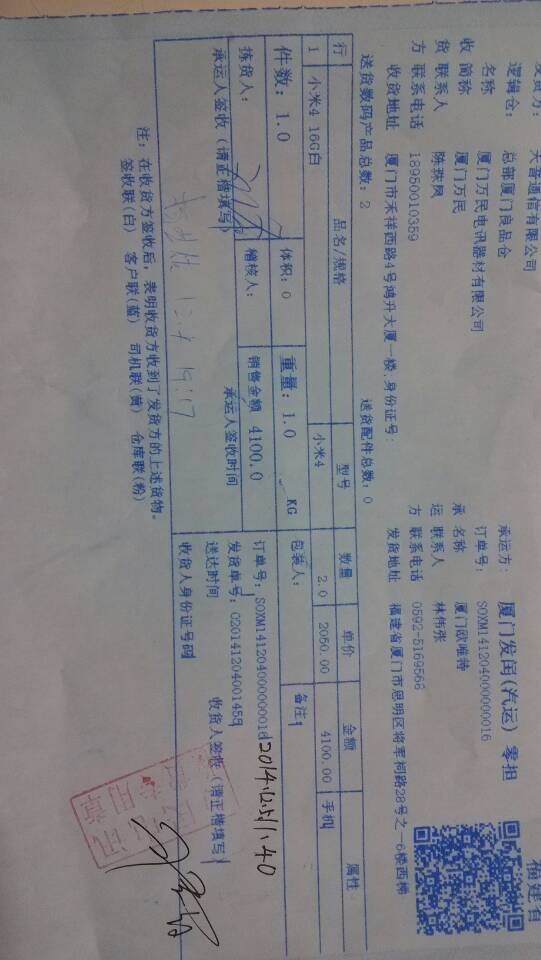 福建省
发货方: 天音通信有限公司
承运方: 厦门发闽(汽运) 零担
逻辑仓: 总部厦门良品仓
订单号: SOXM14120400000016
收 名称 厦门万民电讯器材有限公司
简称 厦门万民
承 名称 厦门欧唯特
货 联系人 陈珠凤
运 联系人 林伟张
方 联系电话 18950010359
方 联系电话 0592-5169568
收货地址 厦门市禾祥西路4号鸿升大厦一楼,身份证号:
发货地址 福建省厦门市思明区将军祠路28号之一6楼西梯
送货数码产品总数: 2 送货配件总数: 0
行 品名/规格 型号 数量 单价 金额 属性
1 小米4 16G白 小米4 2.0 2050.00 4100.00 手机
件数: 1.0 体积: 0 重量: 1.0 KG 包装人: 备注:
拣货人: 稽核人: 销售金额 4100.0
订单号: SOXM14120400000016
发货单号: C20141204001459
承运人签收(请正楷填写) 承运人签收时间
送达时间 2014.12.5/11.40
收货人签收(请正楷填写)
19:17
收货人身份证号码
注: 在收货方签收后, 表明收货方收到了发货方的上述货物。
签收联(白) 客户联(蓝) 司机联(黄) 仓库联(粉)